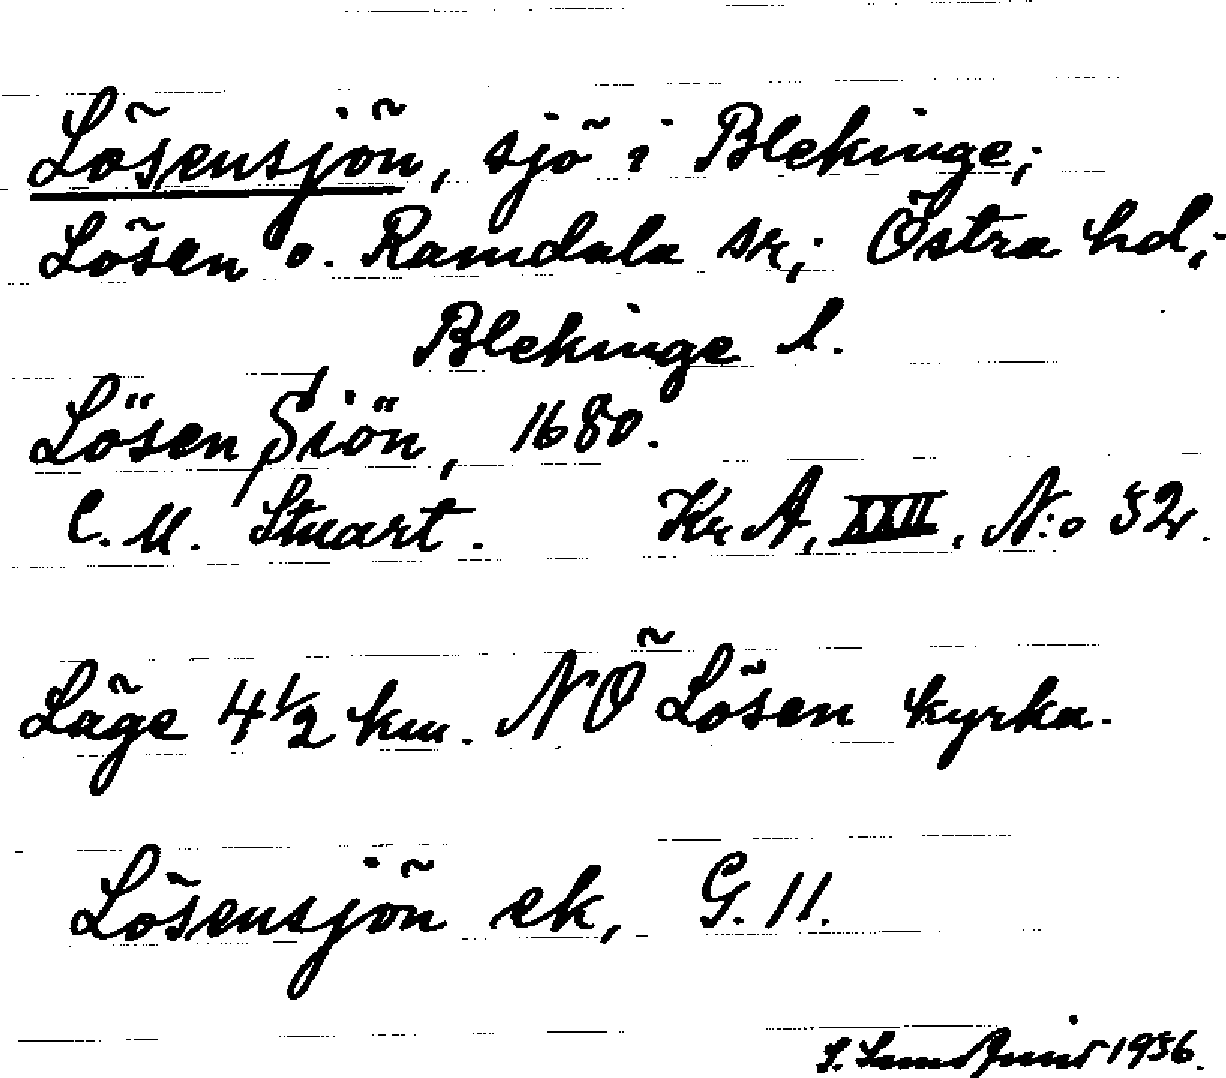 Lösensjön, sjö i Blekinge;
Lösen o. Ramdala sr; Östra hd;
Blekinge l.
Lösen Siön, 1680.
C. M. Stuart. Kr. A, XXII, N:o 52.
Läge 4 1/2 km. NÖ Lösen kyrka.
Lösensjön ek, G. 11.
1936.